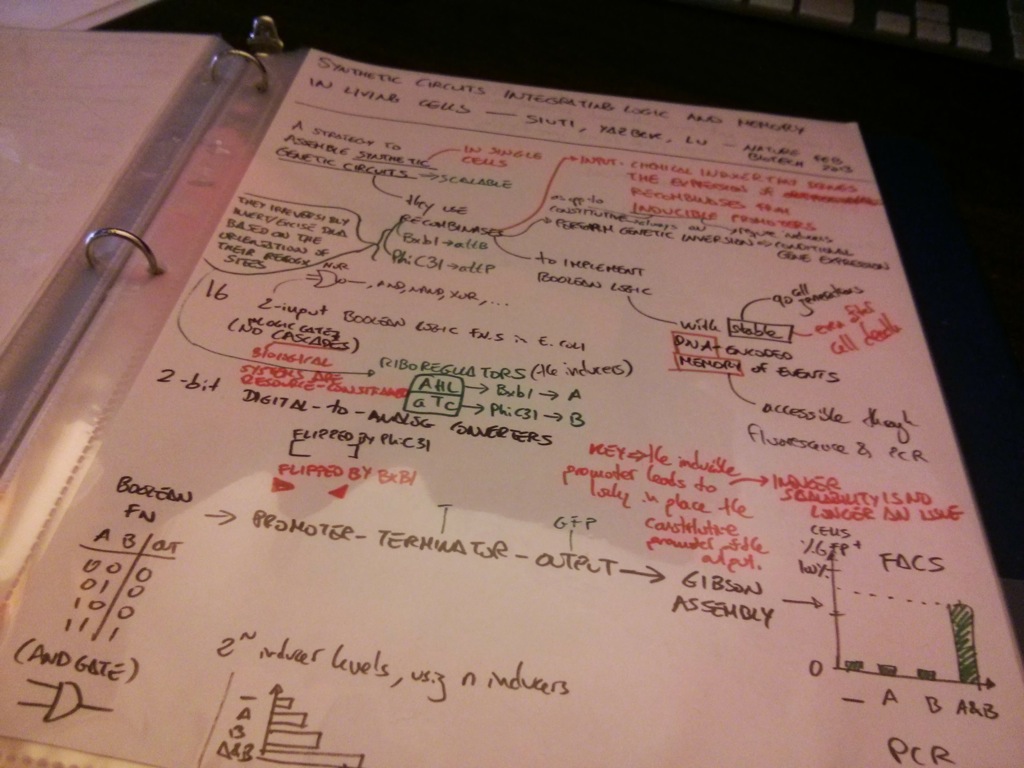 SYNTHETIC CIRCUITS INTEGRATING LOGIC AND MEMORY
IN LIVING CELLS — SIUTI, YAZBEK, LU — NATURE
BIOTECH FEB
2013
A STRATEGY TO
ASSEMBLE SYNTHETIC
GENETIC CIRCUITS → SCALABLE
IN SINGLE
CELLS
INPUT: CHEMICAL INDUCER THAT DRIVES
THE EXPRESSION OF
RECOMBINASES FROM
INDUCIBLE PROMOTERS
as opp to
constitutive = always on
PERFORM GENETIC INVERSION → CONDITIONAL
GENE EXPRESSION
they use
RECOMBINASES
Bxb1 → attB
PhiC31 → attP
THEY IRREVERSIBLY
INVERT/EXCISE DNA
BASED ON THE
ORIENTATION OF
THEIR RECOG
SITES
to IMPLEMENT
BOOLEAN LOGIC
NOR
, AND, NAND, XOR, ...
16
2-input BOOLEAN LOGIC FNS in E. coli
LOGIC GATES
(NO CASCADES)
BIOLOGICAL
SYSTEMS ARE
RESOURCE-CONSTRAINED
with stable
DNA-ENCODED
MEMORY of EVENTS
90 cell
generations
even after
cell death
accessible through
fluorescence & PCR
RIBOREGULATORS (the inducers)
AHL → Bxb1 → A
aTc → PhiC31 → B
2-bit
DIGITAL-to-ANALOG CONVERTERS
FLIPPED BY PhiC31
FLIPPED BY BxB1
KEY → the inducible
promoter leads to
lock in place the
constitutive
promoter of the
output.
INDUCER
STABILITY IS NO
LONGER AN ISSUE
BOOLEAN
FN
A B OUT
0 0 0
0 1 0
1 0 0
1 1 1
(AND GATE)
→ PROMOTER - TERMINATOR - OUTPUT → GIBSON
ASSEMBLY →
T
GFP
CELLS
% GFP+
100%
FACS
0
— A B A&B
PCR
2^N inducer levels, using n inducers
—
A
B
A&B